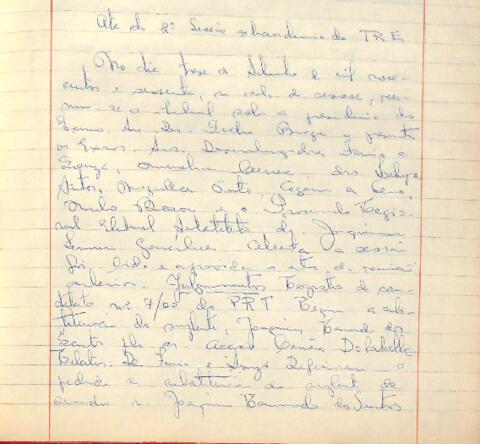 Ata da 2ª Sessão extraordinária do TRE
No dia treze de Setembro de mil nove-
centos e sessenta, na sala de sessões, reu-
niu-se o tribunal sob a presidência do
Exmo. Sr. Des. Pedro Braga, presentes
os Exmos. Srs. Desembargadores Faria e
Souza, Drs.
Santos, Magalhães Pinto, Cezario
e o Procurador Regio-
nal Eleitoral Substituto dr. Joaquim
Gonçalves. Aberta a sessão
foi lida e aprovada a ata da reunião
anterior. Julgamentos Registro de can-
didato nº 7/60 do PRT Requer a subs-
tituição do suplente, Joaquim Raimundo dos
Santos pelo sr. Dolabella
Relator: Des Faria e Souza Deferiram o
pedido de substituição do suplente de
sr. Joaquim Raimundo dos Santos